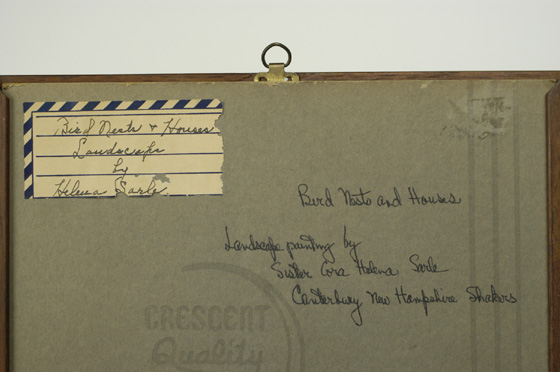 Bird Nests & Houses
Landscape
by
Helena Sarle
Bird Nests and Houses
Landscape painting by
Sister Cora Helena Sarle
Canterbury New Hampshire Shakers
CRESCENT
Quality